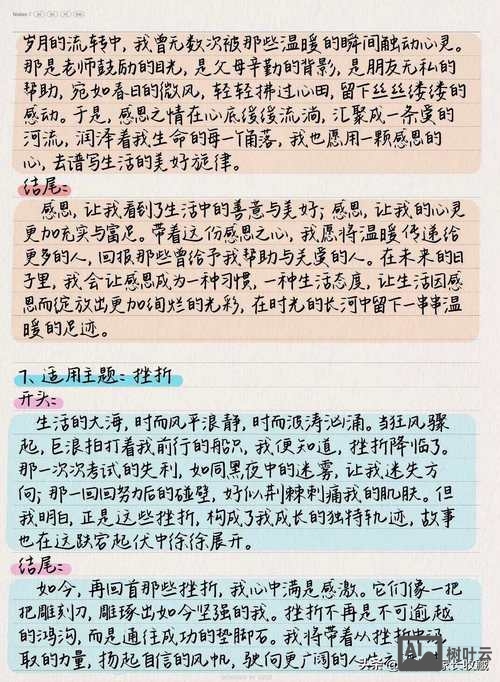 岁月的流转中，我曾无数次被那些温暖的瞬间触动心灵。
那是老师鼓励的目光，是父母辛勤的背影，是朋友无私的
帮助，宛如春日的微风，轻轻拂过心田，留下丝丝缕缕的
感动。于是，感恩之情在心底缓缓流淌，汇聚成一条爱的
河流，润泽着我生命的每一个角落，我也愿用一颗感恩的
心，去谱写生活的美好旋律。
结尾：
感恩，让我看到了生活中的善意与美好；感恩，让我的心灵
更加充实与富足。带着这份感恩之心，我愿将温暖传递给
更多的人，回报那些曾给予我帮助与关爱的人。在未来的日
子里，我会让感恩成为一种习惯，一种生活态度，让生活因感
恩而绽放出更加绚烂的光彩，在时光的长河中留下一串串温
暖的足迹。
7、适用主题：挫折
开头：
生活的大海，时而风平浪静，时而波涛汹涌。当狂风骤
起，巨浪拍打着我前行的船只，我便知道，挫折降临了。
那一次次考试的失利，如同黑夜中的迷雾，让我迷失方
向；那一回回努力后的碰壁，好似荆棘刺痛我的肌肤。但
我明白，正是这些挫折，构成了我成长的独特轨迹，故事
也在这跌宕起伏中徐徐展开。
结尾：
如今，再回首那些挫折，我心中满是感激。它们像一把
把雕刻刀，雕琢出如今坚强的我。挫折不再是不可逾越
的鸿沟，而是通往成功的垫脚石。我将带着从挫折中
取的力量，扬起自信的风帆，驶向更广阔的人生
头条
家长收藏
树叶云